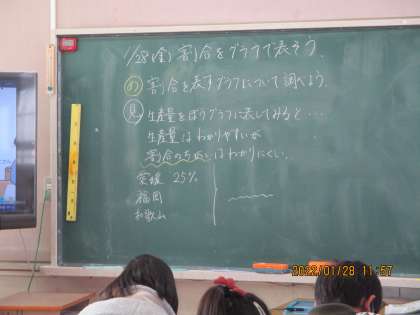 1/28(金) 割合をグラフで表そう。
め 割合を表すグラフについて調べよう。
見 生産量をぼうグラフに表してみると…
生産量はわかりやすいが
割合のちがいはわかりにくい。
愛媛 25%
福岡
和歌山
2022/01/28 11:57